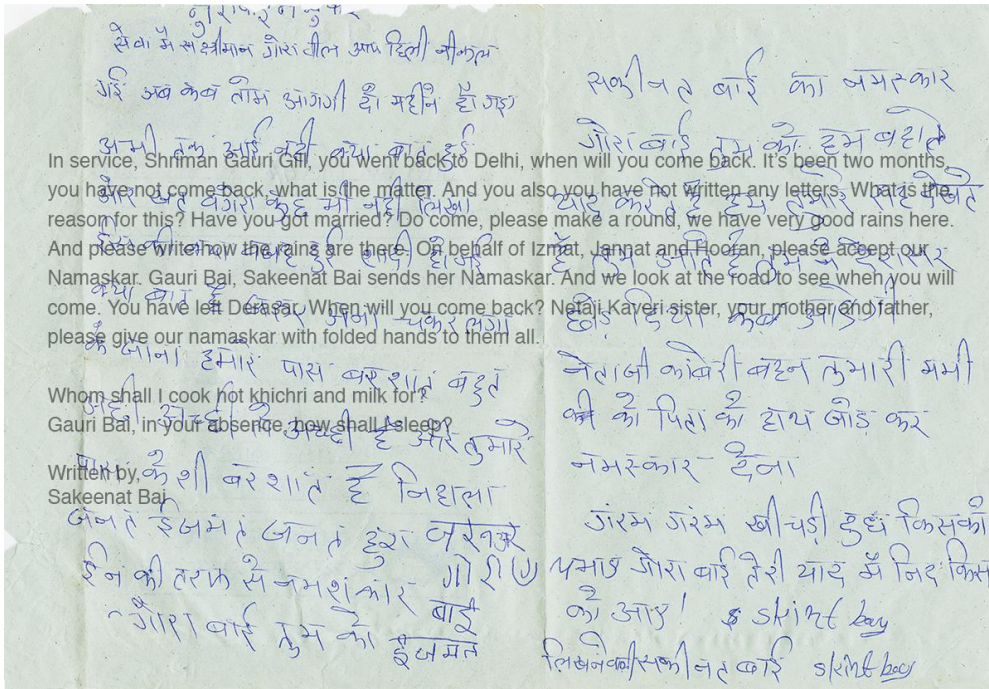 सेवा में श्रीमान गोरा गील आप दिली नीकल
गई अब कब तोम आगगी दो महीने हो गइ
अभी तक आई नही क्या बात हुई
और खत वगेरा कुछ भी नही लिखा
क्या बात है जरुर अना चकर लगा
के जाना हमारे पास बरशात बहुत
अच्छी है और तुमारे
पास कैशी बरशात है निहाला
जनत ईजमत जनत हुरा
ईन की तरफ से नमशकार गोरा
बाई
गोरा बाई तुम को ईजमत
सकीनत बाई का नमस्कार
गोरा बाई तुम को हम बहोत
याद करते है हम तुमारे राह देखते
छोड दिया कब आओगी
नेताजी कांबेरी बहन तुमारी ममी
को पिता को हाथ जोड कर
नमस्कार देना
गंरम गंरम खीचड़ी दुध किसको
गोरा बाई तेरी याद में निद किस
को आए! skint bay
लिखनेवाली सकीनत बाई skint bay
In service, Shriman Gauri Gill, you went back to Delhi, when will you come back. It's been two months,
you have not come back, what is the matter. And you also you have not written any letters. What is the
reason for this? Have you got married? Do come, please make a round, we have very good rains here.
And please write how the rains are there. On behalf of Izmat, Jannat and Hooran, please accept our
Namaskar. Gauri Bai, Sakeenat Bai sends her Namaskar. And we look at the road to see when you will
come. You have left Derasar. When will you come back? Netaji Kaveri sister, your mother and father,
please give our namaskar with folded hands to them all.
Whom shall I cook hot khichri and milk for?
Gauri Bai, in your absence, how shall I sleep?
Written by,
Sakeenat Bai